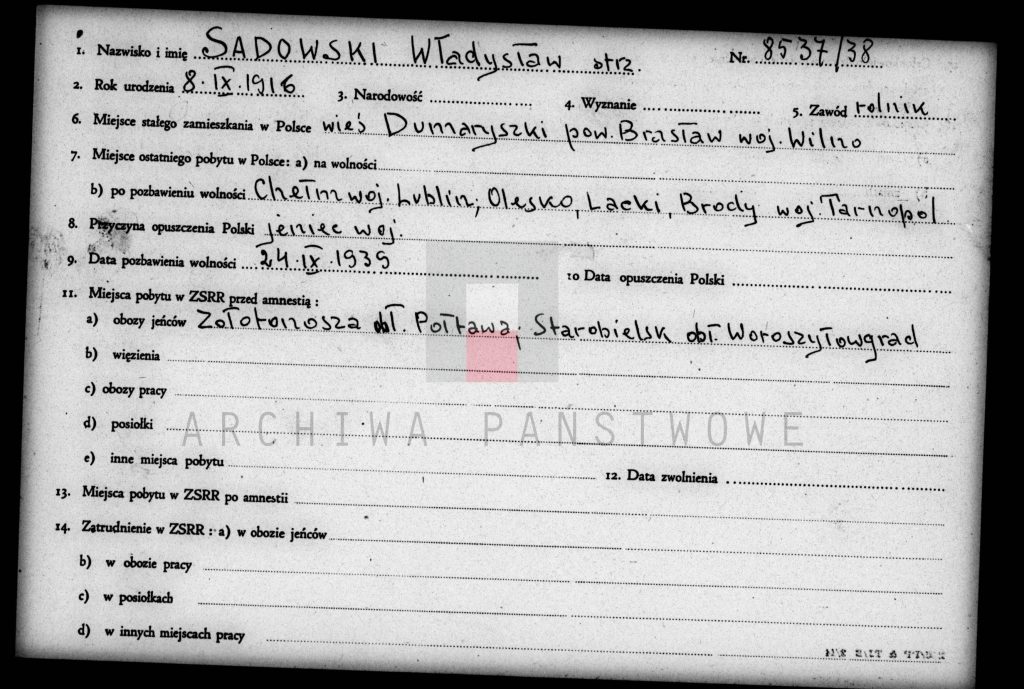 1. Nazwisko i imię SADOWSKI Władysław strz. Nr. 8537/38
2. Rok urodzenia 8.IX.1916 3. Narodowość 4. Wyznanie 5. Zawód rolnik
6. Miejsce stałego zamieszkania w Polsce wieś Dumaryszki pow. Brasław woj. Wilno
7. Miejsce ostatniego pobytu w Polsce: a) na wolności
b) po pozbawieniu wolności Chełm woj. Lublin; Olesko, Lacki, Brody woj Tarnopol
8. Przyczyna opuszczenia Polski jeniec woj.
9. Data pozbawienia wolności 24.IX.1939 10 Data opuszczenia Polski
11. Miejsca pobytu w ZSRR przed amnestią:
a) obozy jeńców Zołotonosza obł. Połtawa; Starobielsk obł. Woroszyłowgrad
b) więzienia
c) obozy pracy
ARCHIWA PAŃSTWOWE
d) posiołki
e) inne miejsca pobytu 12. Data zwolnienia
13. Miejsca pobytu w ZSRR po amnestii
14. Zatrudnienie w ZSRR: a) w obozie jeńców
b) w obozie pracy
c) w posiołkach
d) w innych miejscach pracy